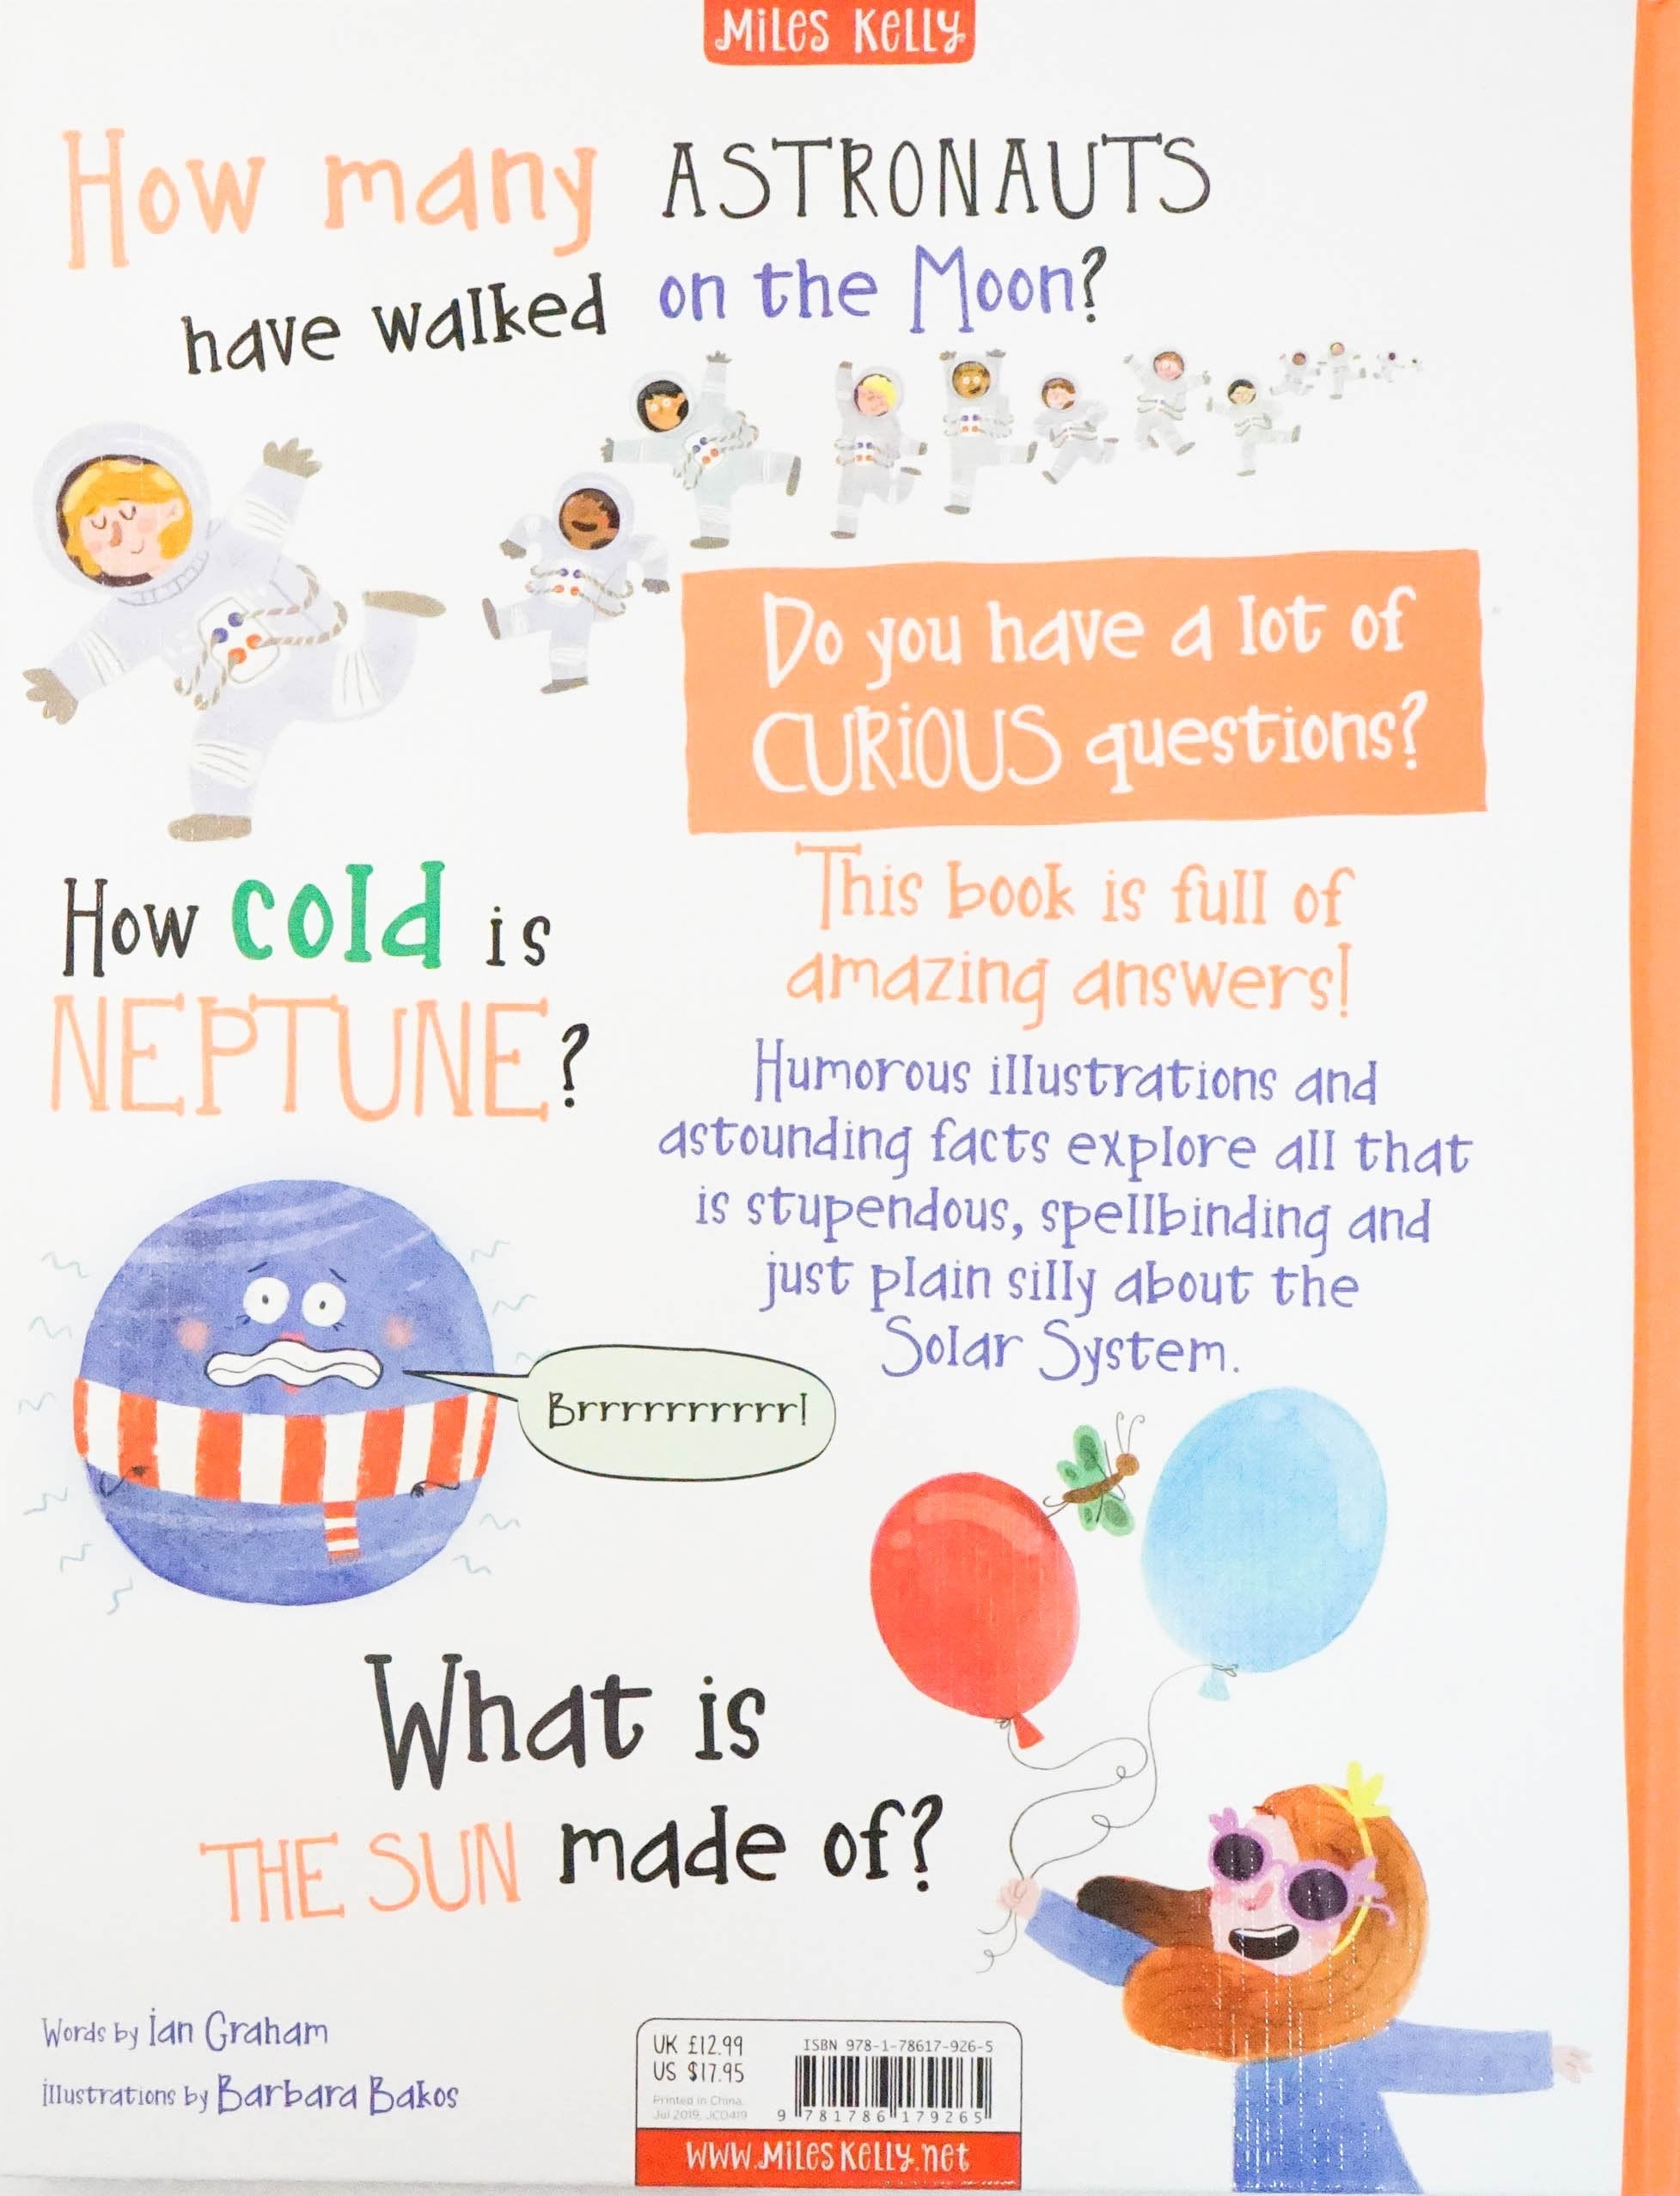 Miles Kelly
How many ASTRONAUTS
have walked on the Moon?
Do you have a lot of
CURiOUS questions?
This book is full of
amazing answers!
How cold is
NEPTUNE?
Humorous illustrations and
astounding facts explore all that
is stupendous, spellbinding and
just plain silly about the
Solar System.
Brrrrrrrrrrr!
What is
THE SUN made of?
Words by Ian Graham
illustrations by Barbara Bakos
UK £12.99
US $17.95
Printed in China,
Jul 2019, JC0419
ISBN 978-1-78617-926-5
9 781786 179265
www.MilesKelly.net